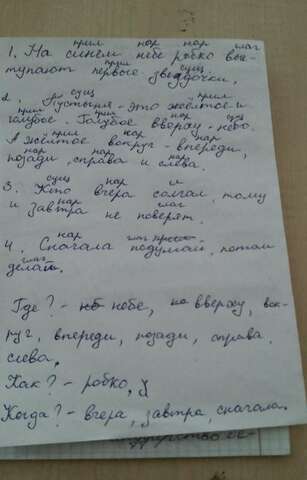 прил нар нар глаг
1. На синем небе робко выс-
прил сущ
тупают первые звёздочки.
сущ прил
2. Пустыня - это жёлтое и
прил нар сущ
голубое. Голубое вверху - небо.
прил нар нар
А жёлтое вокруг - впереди,
нар нар нар
позади, справа и слева.
сущ нар
3. Кто вчера солгал, тому
нар глаг
и завтра не поверят.
нар глаг
4. Сначала подумай, потом
глаг
делай.
Где? - небе, вверху, вок-
руг, впереди, позади, справа,
слева.
Как? - робко,
Когда? - вчера, завтра, сначала.